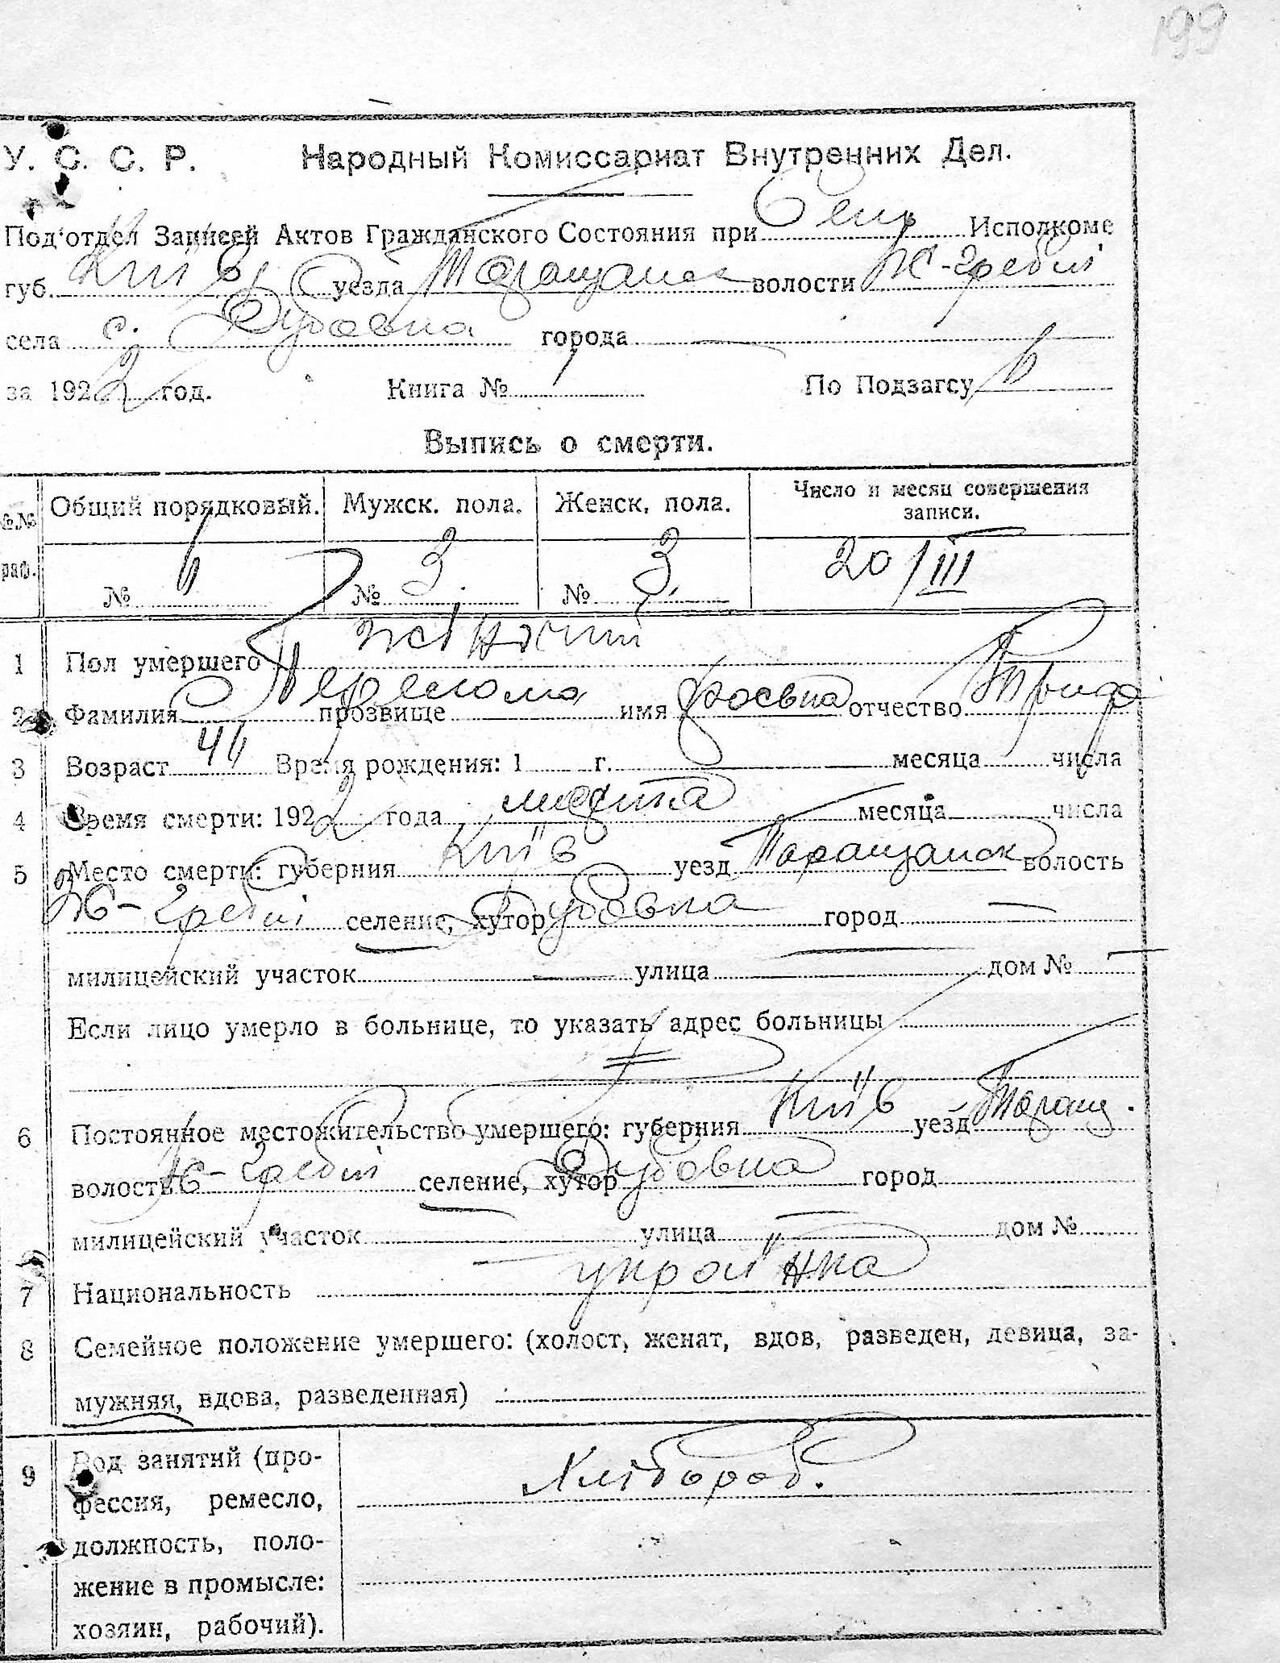 199
У. С. С. Р. Народный Комиссариат Внутренних Дел.
Под'отдел Записей Актов Гражданского Состояния при Исполкоме
губ. Київ уезда Таращанск волости Ж-Гребли
села с. Дубовка города
за 1922 год. Книга № 1 По Подзагсу 6
Выпись о смерти.
№№ граф. Общий порядковый. Мужск. пола. Женск. пола. Число и месяц совершения записи.
№ 6 № 3. № 3. 20/III
1 Пол умершего жіночий
2 Фамилия прозвище имя отчество
3 Возраст Время рождения: 1 г. месяца числа
4 Время смерти: 1922 года месяца числа
5 Место смерти: губерния Київ уезд Таращанск волость
Ж-Греблі селение, хутор Дубовка город —
милицейский участок — улица — дом № —
Если лицо умерло в больнице, то указать адрес больницы
6 Постоянное местожительство умершего: губерния Київ уезд Таращ.
волость Ж-Греблі селение, хутор Дубовка город
милицейский участок — улица — дом №
7 Национальность украінка
8 Семейное положение умершего: (холост, женат, вдов, разведен, девица, за-
мужняя, вдова, разведенная)
9 Род занятий (про- Хлібороб.
фессия, ремесло,
должность, поло-
жение в промысле:
хозяин, рабочий).